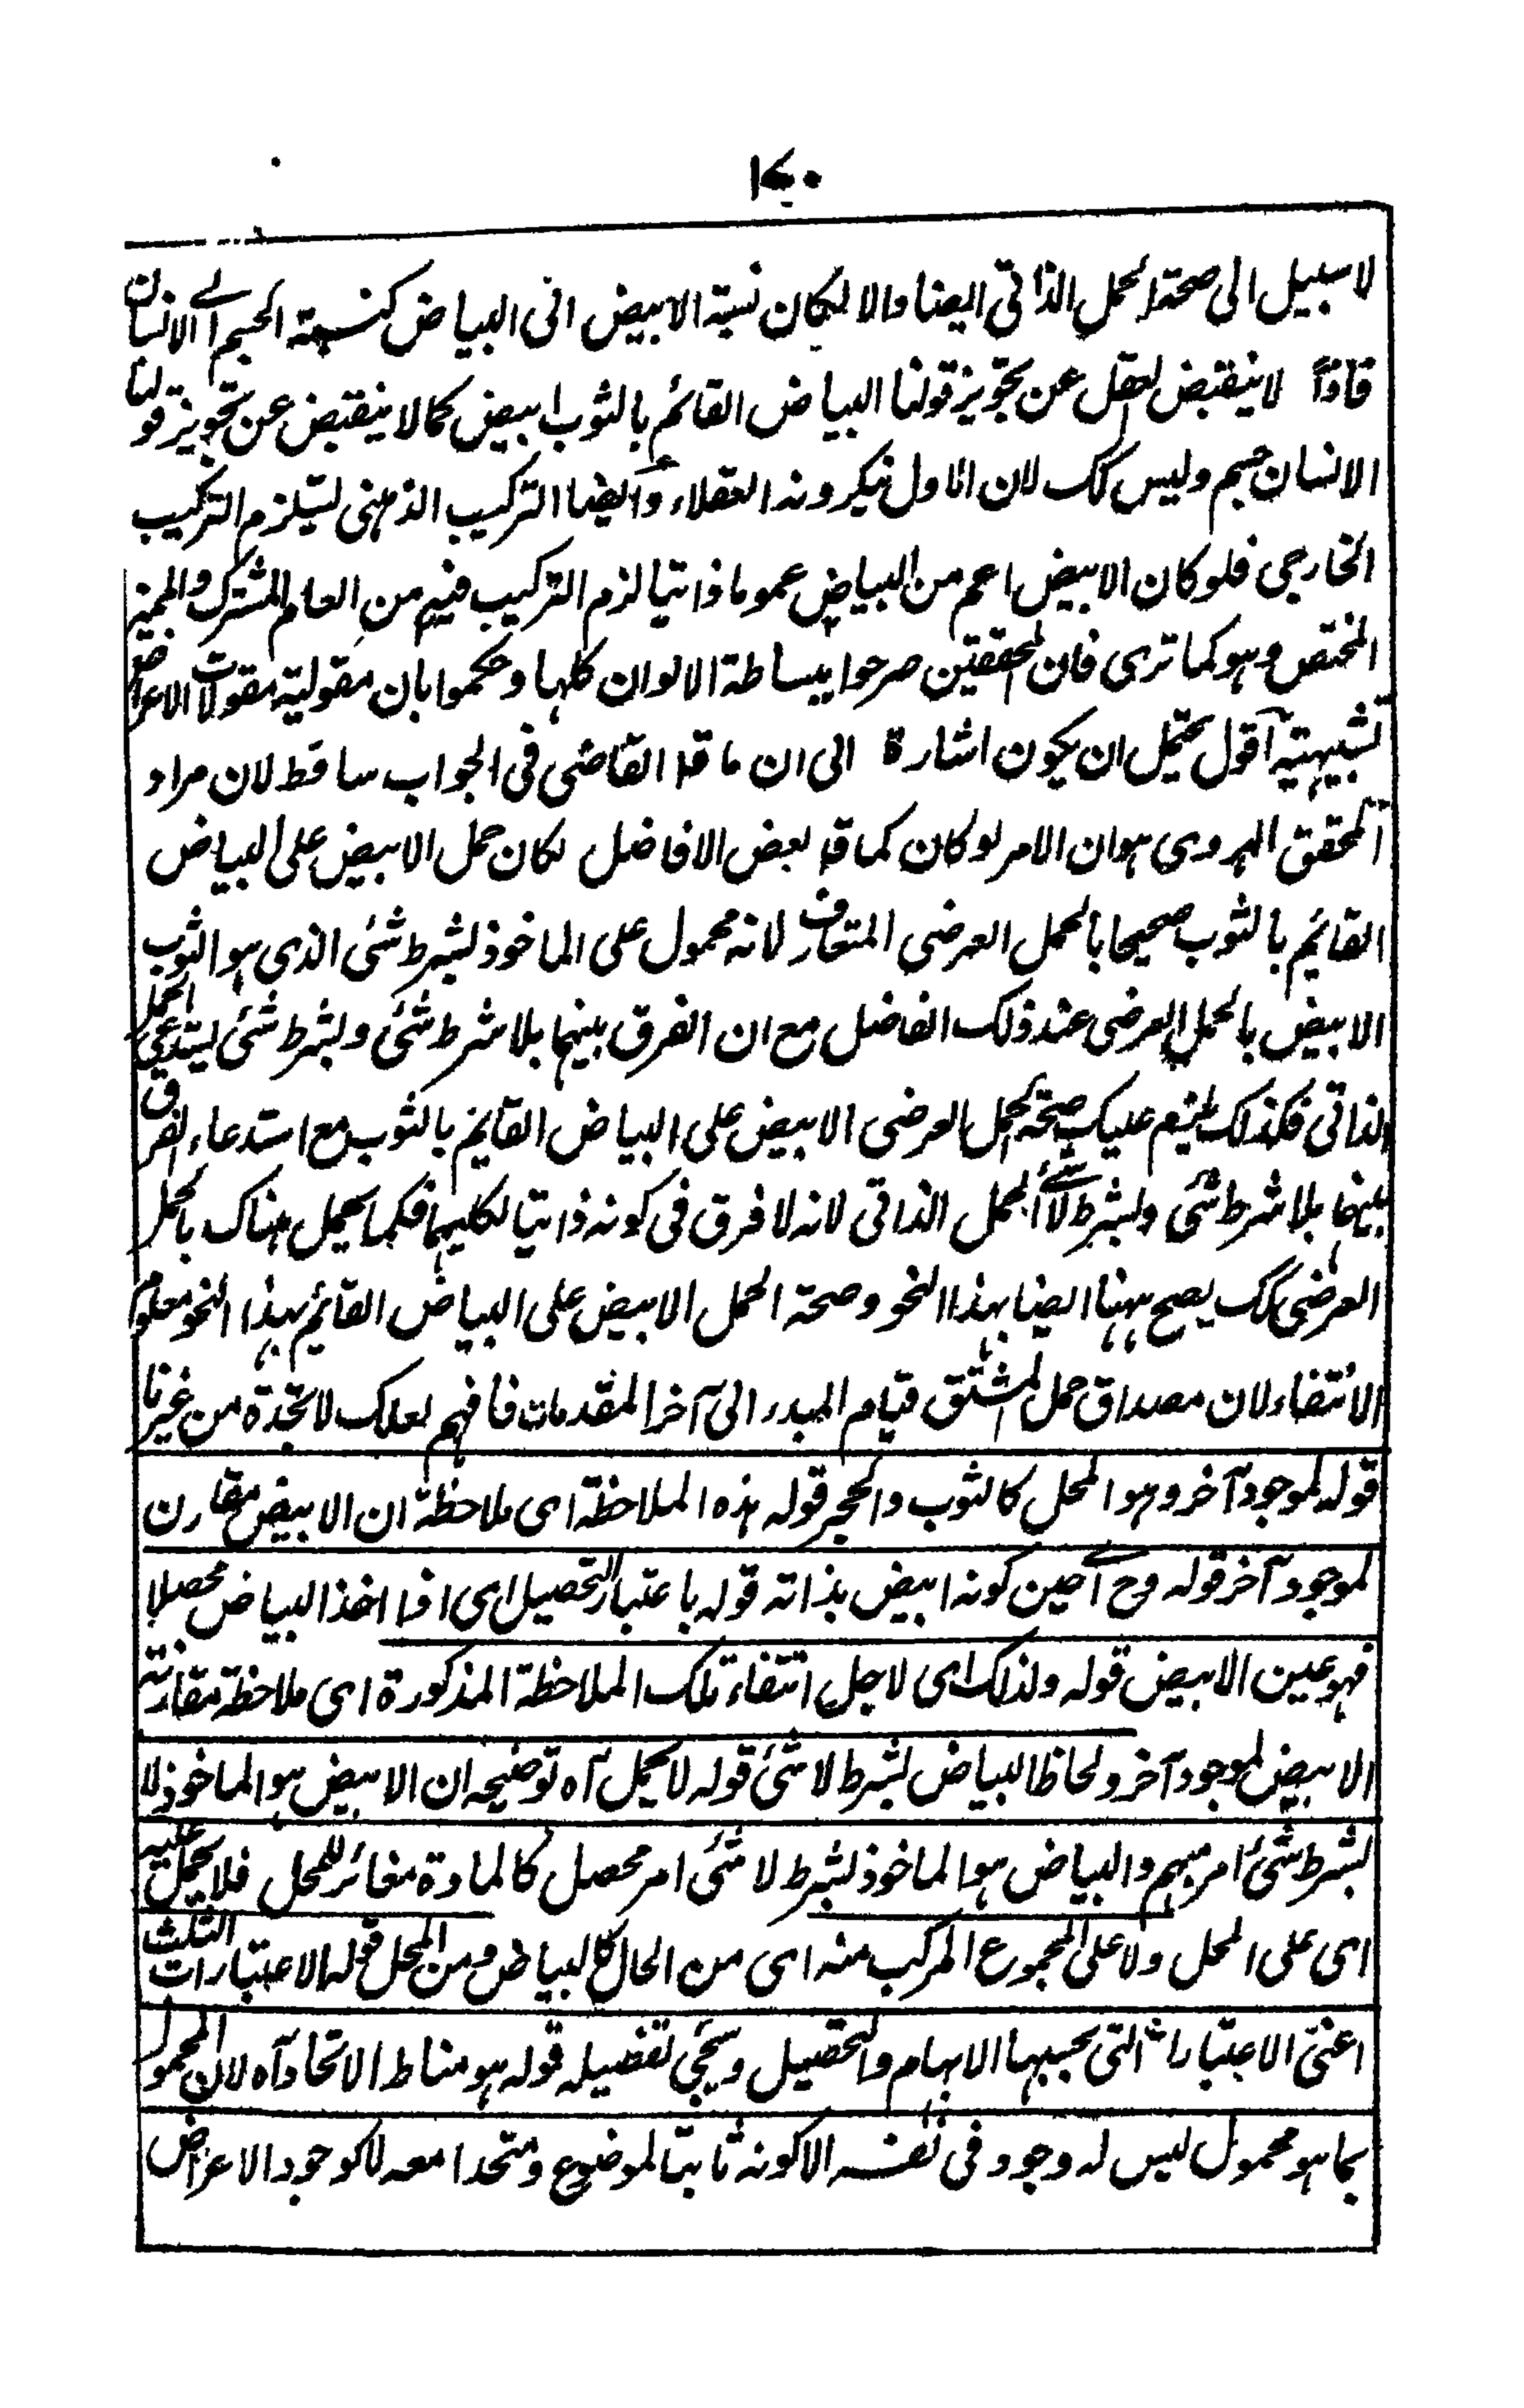 ١٧٠
لا سبيل الى صحة الحمل الذاتى ايضا والا لكان نسبة الابيض الى البياض كنسبة الجسم الى الانسان
فاذاً لا ينقبض العقل عن تجويز قولنا البياض القائم بالثوب ابيض كما لا ينقبض عن تجويز قولنا
الانسان جسم وليس كك لان الاول ينكرونه العقلاء وايضا التركيب الذهنى يستلزم التركيب
الخارجى فلو كان الابيض اعم من البياض عموما ذاتيا لزم التركيب فيه من العام المشترك والمميز
المختص وهو كما ترى فان المحققين صرحوا ببساطة الالوان كلها وحكموا بان مقولية مقولات الاعراض
تشبيهية آقول يحتمل ان يكون اشارة الى ان ما قا القاضى فى الجواب ساقط لان مراد
المحقق الهروى هو ان الامر لو كان كما قا بعض الافاضل لكان حمل الابيض على البياض
القائم بالثوب صحيحا بالحمل العرضى المتعارف لانه محمول على الماخوذ بشرط شئ الذى هو الثوب
الابيض بالحمل العرضى عند ذلك الفاضل مع ان الفرق بينهما بلا شرط شئ وبشرط شئ يستدعى الحمل
الذاتى فكذلك يلزم عليك صحة الحمل العرضى الابيض على البياض القايم بالثوب مع استدعاء الفرق
بينهما بلا شرط شئ وبشرط لا شئ الحمل الذاتى لانه لا فرق فى كونه ذاتيا لكليهما فكما يحمل هناك بالحمل
العرضى كك يصح ههنا ايضا بهذا النحو وصحة الحمل الابيض على البياض القائم بهذا النحو معلوم
الانتفاء لان مصداق حمل المشتق قيام المبدء الى آخر المقدمات فافهم لعلك لا تجده من غيرنا
قوله لموجود آخر وهو المحل كالثوب والحجر قوله هذه الملاحظة اى ملاحظة ان الابيض مقارن
لموجود آخر قوله وح اى حين كونه ابيض بذاته قوله باعتبار التحصيل اى اذا اخذ البياض محصلا
فهو عين الابيض قوله ولذلك اى لاجل انتفاء تلك الملاحظة المذكورة اى ملاحظة مقارنته
الابيض لموجود آخر ولحاظ البياض بشرط لا شئ قوله لا يحمل آه توضيحه ان الابيض هو الماخوذ لا
بشرط شئ امر مبهم والبياض هو الماخوذ بشرط لا شئ امر محصل كالمادة مغائر للمحل فلا يحمل عليه
اى على المحل ولا على المجموع المركب منه اى من الحال كالبياض ومن المحل قوله الاعتبارات الثلث
اعنى الاعتبارات التى بحسبها الابهام والتحصيل وسيجئ تفصيله قوله هو مناط الاتحاد آه لان المحمول
بما هو محمول ليس له وجود فى نفسه الا كونه ثابتا لموضوع ومتحدا معه لا كوجود الاعراض